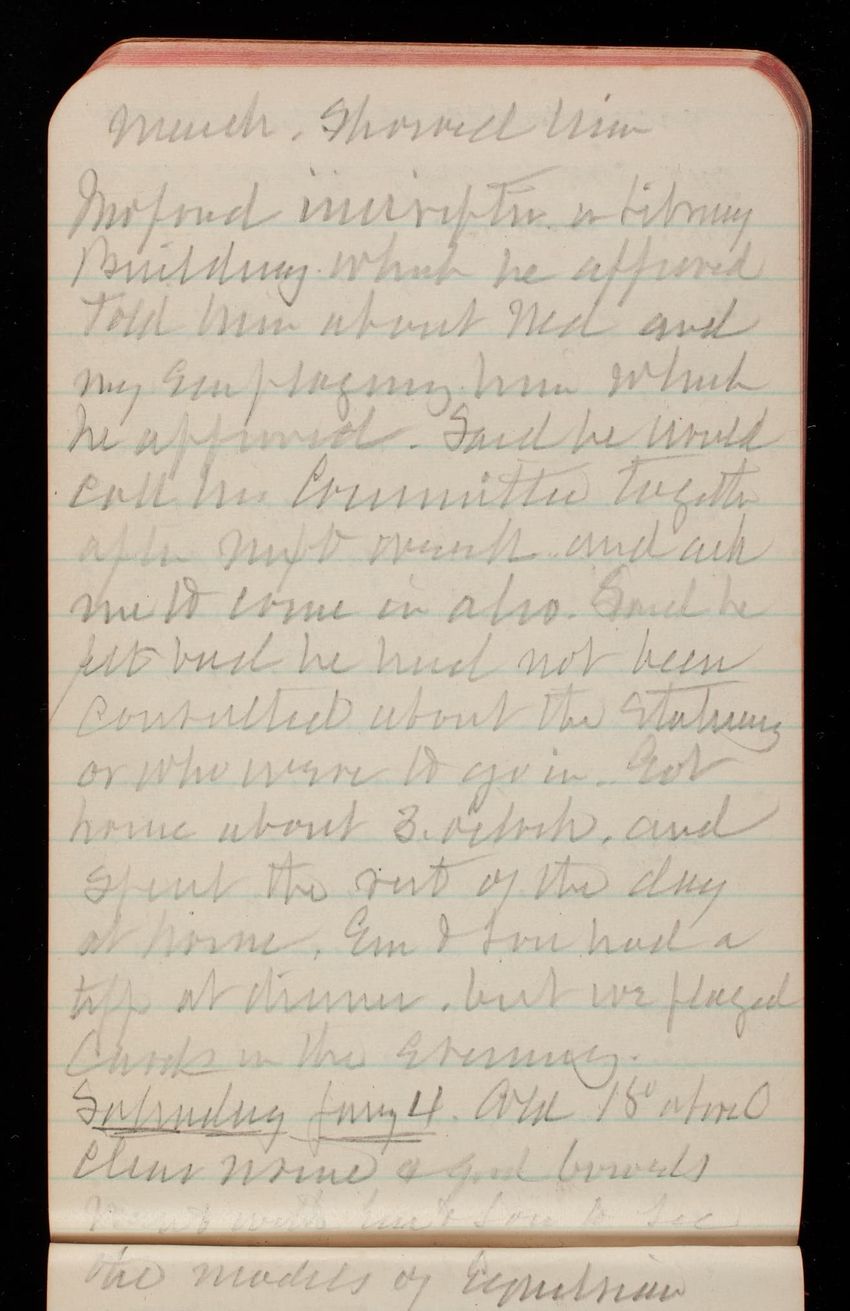 much. Showed him
proposed inscription in Library
Building. which he approved
Told him about Ned and
my employing him which
he approved. Said he would
call his Committee together
after next and ask
me to come in also. Said he
felt bad he had not been
consulted about the Statuary
or who were to go in. Got
home about 3. oclock. and
spent the rest of the day
at home. Em & Lou had a
tiff at dinner. but we played
Cards in the evening.
Saturday Jany 4. Cold 18° above 0
Clear none a good bowels
Went with Em & Lou to see
the models of Equestrian